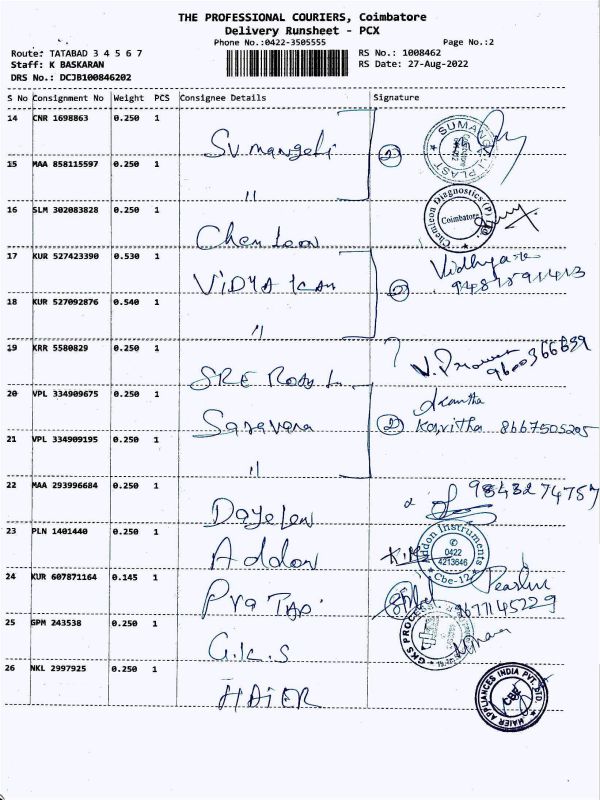 THE PROFESSIONAL COURIERS, Coimbatore
Delivery Runsheet - PCX
Phone No.:0422-3505555 Page No.:2
Route: TATABAD 3 4 5 6 7 RS No.: 1008462
Staff: K BASKARAN RS Date: 27-Aug-2022
DRS No.: DCJB100846202
S No Consignment No Weight PCS Consignee Details Signature
14 CNR 1698863 0.250 1
Sumangali 2
SUMANGALI PLAST
15 MAA 858115597 0.250 1
"
16 SLM 302083828 0.250 1
Chemicon Diagnostics (P) Ltd
Coimbatore
17 KUR 527423390 0.530 1
VIDYA 2
18 KUR 527092876 0.540 1
"
19 KRR 5580829 0.250 1
SRE
9600366639
20 VPL 334909675 0.250 1
Saravana 2 Kavitha 8667505205
21 VPL 334909195 0.250 1
"
22 MAA 293996684 0.250 1
9843274757
23 PLN 1401440 0.250 1
Addon
Addon Instruments
0422
4213646
Cbe-12
24 KUR 607871164 0.145 1
PraTap
9677145229
25 GPM 243538 0.250 1
G.K.S
GKS PROCESS
26 NKL 2997925 0.250 1
HAIER
HAIER APPLIANCES INDIA PVT. LTD.
CBE